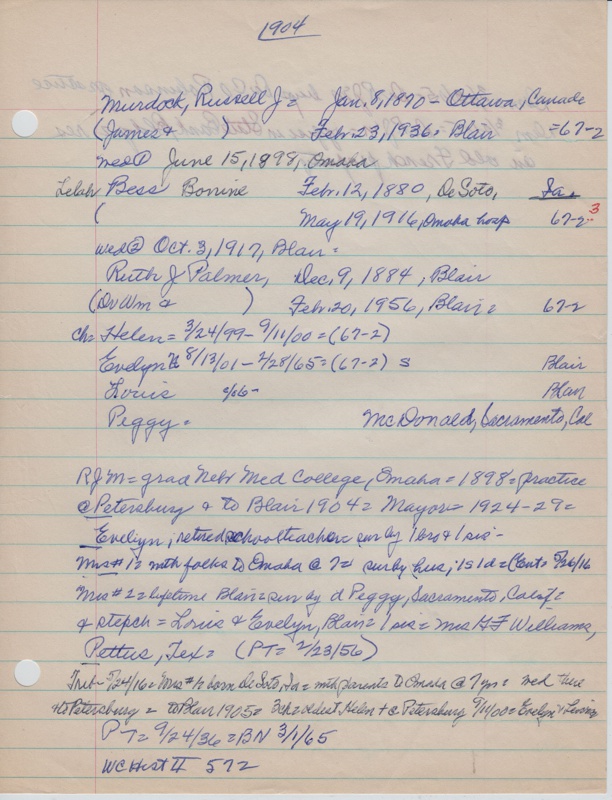 1904
Murdock, Russell J = Jan. 8, 1870 - Ottawa, Canada
(James & ) Feb. 23, 1936 = Blair = 67-2
wed ① June 15, 1898, Omaha
Lelah Bess Bonine Feb. 12, 1880, De Soto, Ia.
( May 19, 1916, Omaha hosp 67-2 3
wed ② Oct. 3, 1917, Blair =
Ruth J Palmer, Dec. 9, 1884, Blair
(Dr Wm & ) Feb. 20, 1956, Blair = 67-2
Ch = Helen = 3/24/99 - 9/11/00 = (67-2)
Evelyn 8/13/01 - 2/28/65 = (67-2) s Blair
Louis Blair
Peggy = McDonald, Sacramento, Cal
RJM = grad Nebr Med College, Omaha = 1898 = practice
@ Petersburg & to Blair 1904 = Mayor = 1924-29 =
Evelyn, retired schoolteacher = sur by 1 bro & 1 sis -
Mrs #1 = mth folks to Omaha @ 7 = sur by hus, 1s 1d = (Ent = 5/26/16
Mrs #2 = lifetime Blair = sur by d Peggy, Sacramento, Calif =
& stepch = Louis & Evelyn, Blair = 1 sis = Mrs H F Williams,
Pettus, Tex = (PT = 2/23/56)
Trib - 5/24/16 = Mrs #1 = born De Soto, Ia = mth parents to Omaha @ 7 yrs = wed there
& to Petersburg = to Blair 1905 = 3ch = oldest Helen + @ Petersburg 9/11/00 = Evelyn &
PT = 2/24/36 = BN 3/1/65
WC Hist II 572